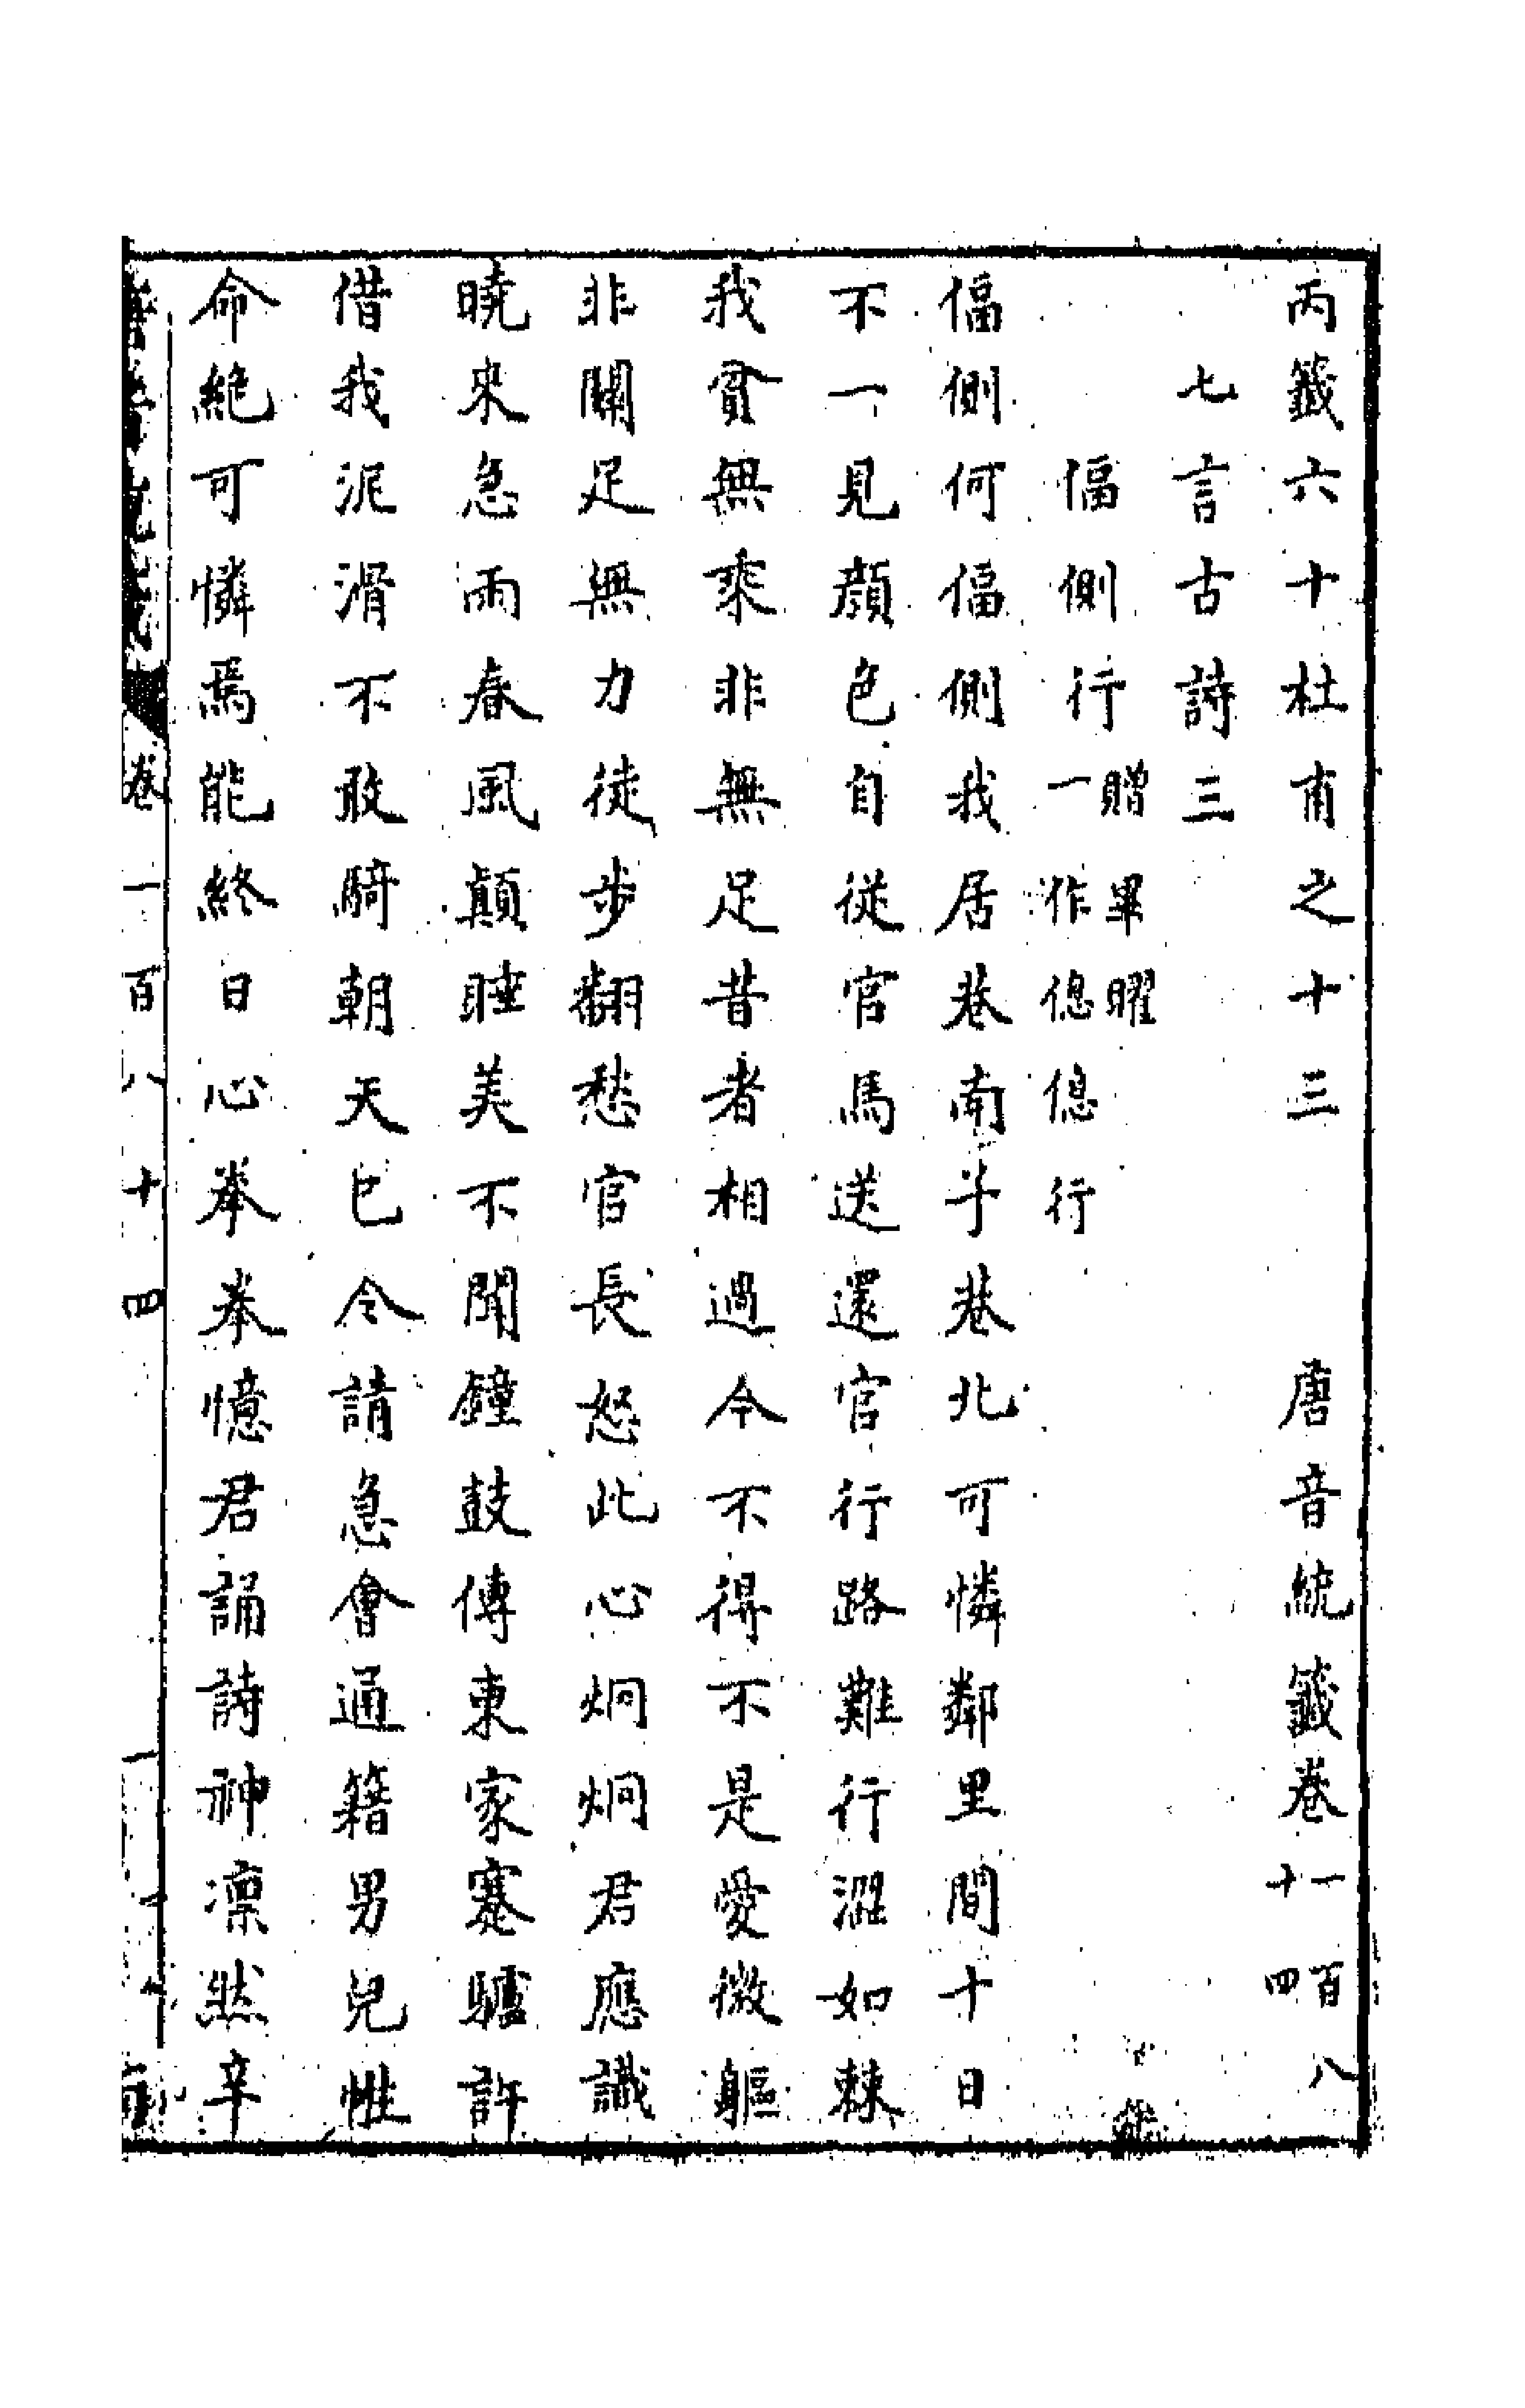 丙籖六十杜甫之十三　唐音統籖卷一百八十四
七言古詩三
偪側行贈畢曜一作偲偲行
偪側何偪側我居巷南子巷北可憐鄰里間十日
不一見顔色自從官馬送還官行路難行澀如棘
我貧無乘非無足昔者相過今不得不是愛微軀
非關足無力徒步翻愁官長怒此心炯炯君應識
曉來急雨春風顛睡美不聞鐘鼓傳東家蹇驢許
借我泥滑不敢騎朝天已令請急會通籍男兒性
命絶可憐焉能終日心拳拳憶君誦詩神凛然辛
卷一百八十四